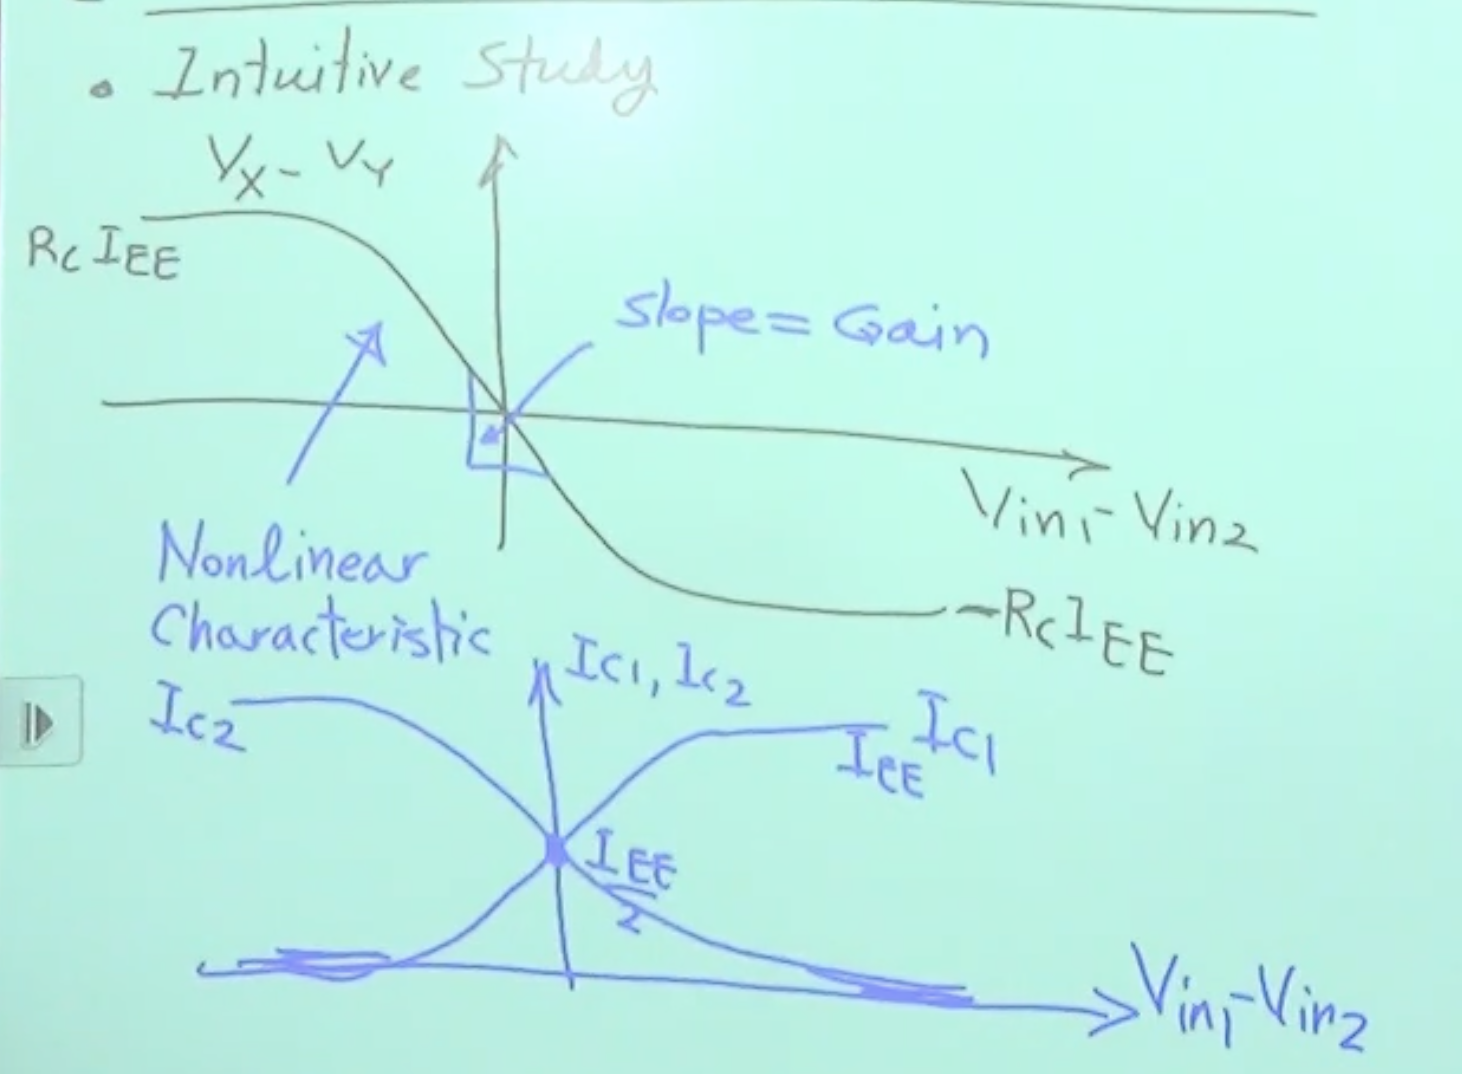 • Intuitive Study
Vx - VY
Rc IEE
Slope = Gain
Vin1 - Vin2
Nonlinear
Characteristic
-Rc IEE
Ic1, Ic2
Ic2
Ic1
IEE
IEE/2
Vin1 - Vin2